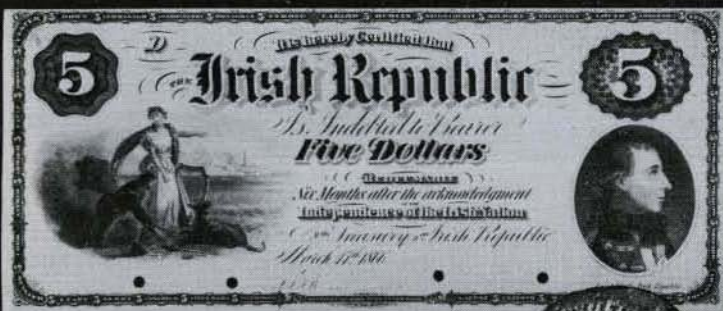 It is hereby Certified that
5 D THE Irish Republic 5
Is Indebted to Bearer
Five Dollars
REDEEMABLE
Six Months after the acknowledgment
Independence of the Irish Nation
Treasury Irish Republic
March 17th 1866